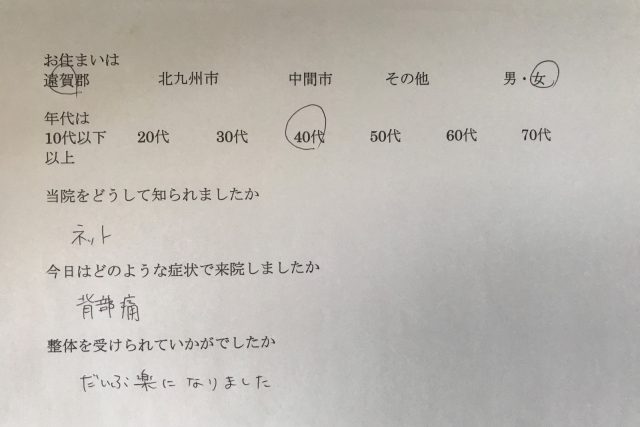 お住まいは
遠賀郡 北九州市 中間市 その他 男・女
年代は
10代以下 20代 30代 40代 50代 60代 70代
以上
当院をどうして知られましたか
ネット
今日はどのような症状で来院しましたか
背部痛
整体を受けられていかがでしたか
だいぶ楽になりました